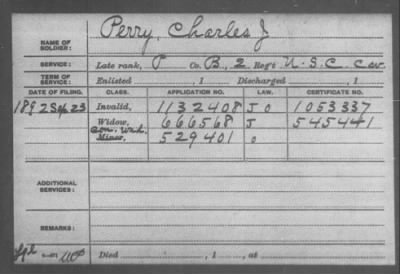 NAME OF SOLDIER: Perry, Charles J
SERVICE: Late rank, P Co. B, 2 Reg't U.S.C Cav
TERM OF SERVICE: Enlisted , 1 Discharged , 1
DATE OF FILING. CLASS. APPLICATION NO. LAW. CERTIFICATE NO.
1892 Sep 23 Invalid, 1132408 J O 1053337
Widow, 666568 J 545441
Con. Wid.
Minor, 529401 O
ADDITIONAL SERVICES:
REMARKS:
Died , 1 , at